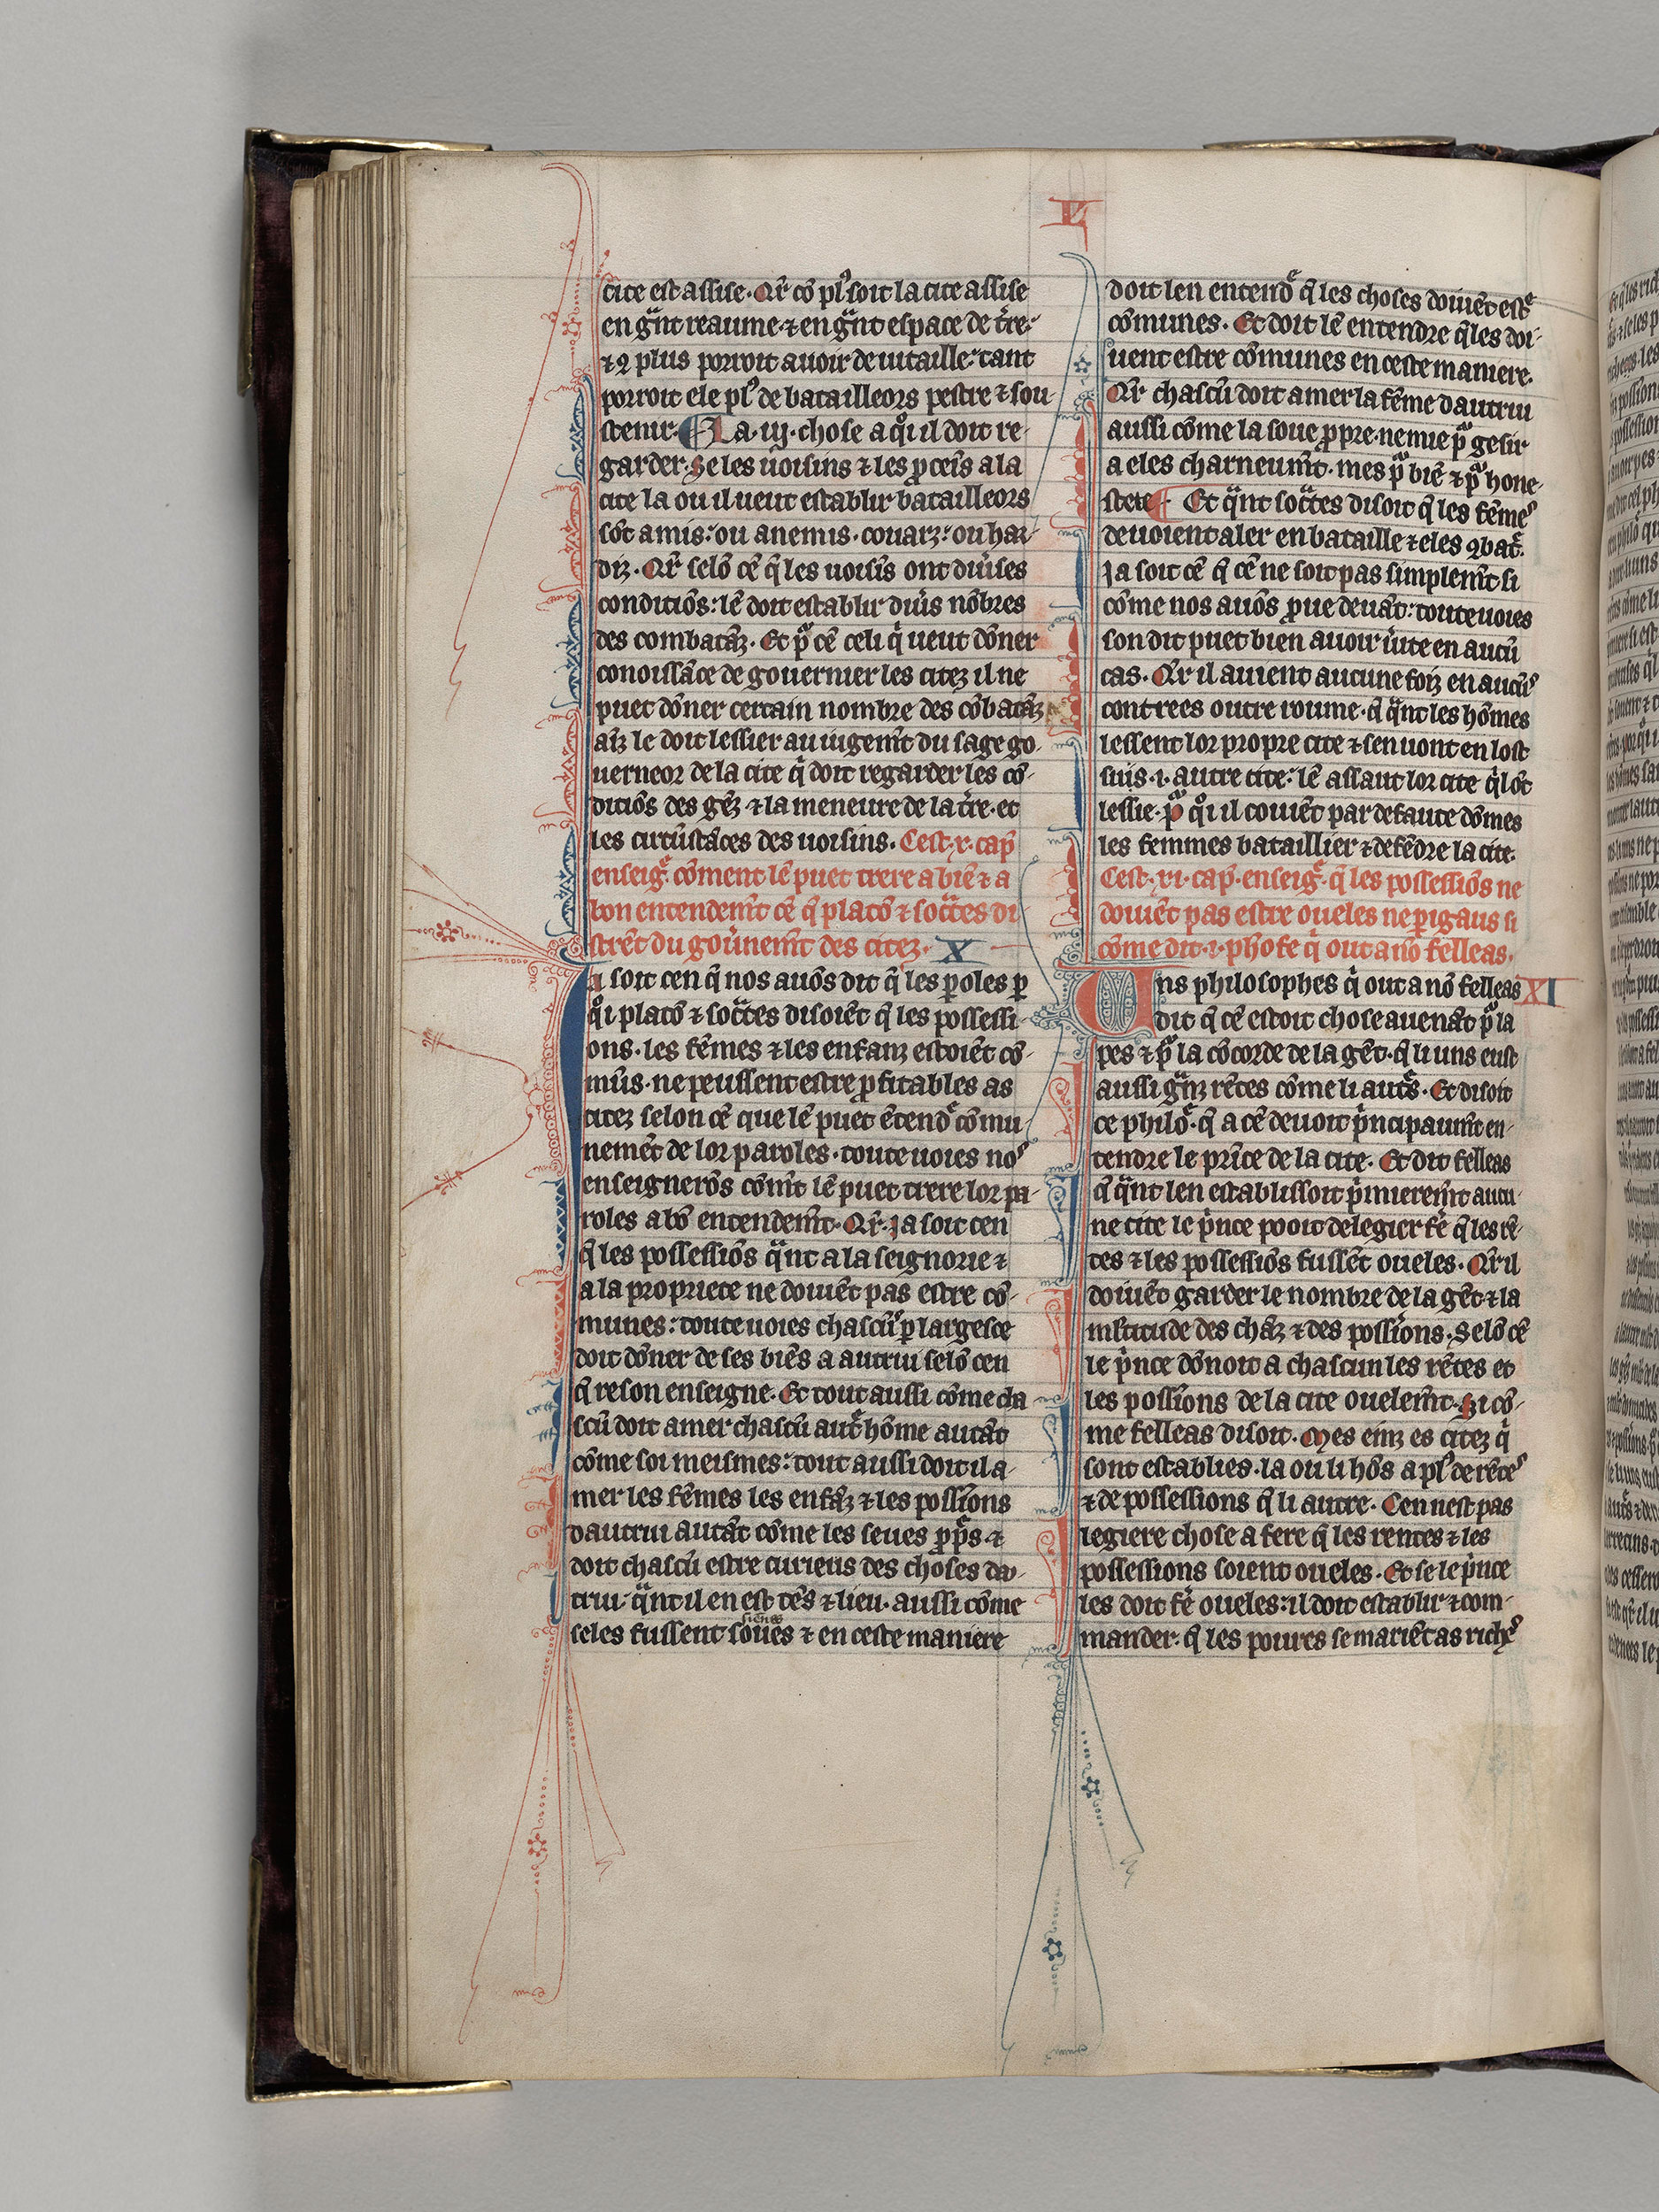 L
cite est assise. Qr̄ cō plꝰ soit la cite assise
en gͣnt reaume ⁊ en gͣnt espace de t̄re.
⁊ ꝯ plus porroit auoir de uitaille: tant
porroit ele plꝰ de batailleors pestre ⁊ sou
stenir. ¶ La .iij. chose a qͦi il doit re
garder. Se les uoisins ⁊ les ꝓceīs a la
cite la ou il ueut establir batailleors
sōt amis: ou anemis. couarz: ou har
diz. Qr̄ selō cē q̄ les uoisīs ont diūses
conditiōs: lē doit establir diūs nōbres
des combatāz. Et pͣ cē celi qͥ ueut dōner
conoissāce de gouerner les citez il ne
puet dōner certain nombre des cōbatāz
aīz le doit lessier au iugem̄t du sage go
uerneor de la cite qͥ doit regarder les cō
ditiōs des gēz ⁊ la meneure de la t̄re. et
les circūstāces des uoisins. Cest .x. cap̄
enseigͤ. cōment lē puet trere a biē ⁊ a
bon entendem̄t cē q̄ platō ⁊ soctͣes di
strēt du goūnem̄t des citez. X
Ja soit cen q̄ nos auōs dit q̄ les ꝑoles ꝑ
qͦi platō ⁊ soctͣes disoiēt q̄ les possessi
ons. les fēmes ⁊ les enfanz estoiēt cō
mūs. ne peussent estre ꝓfitables as
citez selon cē que lē puet ētendͤ cōmu
nemēt de lor paroles. toute uoies noꝰ
enseignerōs cōm̄t lē puet trere lor pa
roles a bō entendem̄t. Qr̄. ja soit cen
q̄ les possessiōs qͣnt a la seignorie ⁊
a la propriete ne doiuēt pas estre cō
munes: toute uoies chascūꝰ ꝑ largesce
doit dōner de ses biēs a autrui selō cen
q̄ reson enseigne. Et tout aussi cōme cha
scū doit amer chascū autͤ hōme autāt
cōme soi meismes: tout aussi doit il a
mer les fēmes les enfāz ⁊ les possīons
dautrui autāt cōme les seues ꝓpͤs ⁊
doit chascū estre curieus des choses dau
trui. qͣnt il en est tēs ⁊ lieu. aussi cōme
sienes
seles fussent soues ⁊ en ceste maniere
doit len entendͤ q̄ les choses doiuēt estͤ
cōmunes. Et doit lē entendre q̄les doi
uent estre cōmunes en ceste maniere.
Qr̄ chascū doit amer la fēme dautrui
aussi cōme la soue ꝓpre. ne mie pͣ gesir
a eles charneum̄t. mes pͣ biē ⁊ pͣ hone
stete ¶ Et qͣnt soctͣes disoit q̄ les fēmeꝰ
deuoient aler en bataille ⁊ eles ꝯbatͤ.
ja soit cē q̄ cē ne soit pas simplem̄t si
cōme nos auōs ꝓue deuāt: toute uoies
son dit puet bien auoir ūite en aucū
cas. Qr̄ il auient aucune foiz en aucūꝰ
contrees outre roume. q̄ qͣnt les hōmes
lessent lor propre cite ⁊ sen uont en lost
suis .i. autre cite: lē assaut lor cite qͥl ōt
lessie. pͣ qͦi il couiēt par defaute dōmes
les femmes bataillier ⁊ defēdre la cite.
Cest .xi. cap̄. enseigͤ. q̄ les possessiōs ne
doiuēt pas estre oueles ne ꝑigaus si
cōme dit .i. phōfe qͥ out a nō felleas.
Uns philosophes qͥ out a nō felleas XI
dit q̄ cē estoit chose auenāt pͣ la
pes ⁊ pͣ la cōcorde de la gēt. q̄ li uns eust
aussi gͣnz rētes cōme li autͤs. Et disoit
ce philōͤ. q̄ a cē deuoit pͥncipaum̄t en
tendre le prīce de la cite. Et dit felleas
q̄ qͣnt len establissoit pͥmierem̄t aucu
ne cite le pͥnce pooit de legier fē q̄ les rē
tes ⁊ les possessiōs fussēt oueles. Qr̄ il
doiuēt garder le nombre de la gēt ⁊ la
mltitude des chāz ⁊ des possīons. Selō cē
le pͥnce dōnoit a chascun les rētes et
les possīons de la cite ouelem̄t. Si cō
me felleas disoit. Mes einz es citez qͥ
sont establies. la ou li hōs a plꝰ de rēteꝰ
⁊ de possessions q̄ li autre. Cen nest pas
legiere chose a fere q̄ les rentes ⁊ les
possessions soient oueles. Et se le pͥnce
les doit fē oueles: il doit establir ⁊ com
mander. q̄ les poures se mariēt as richeꝰ